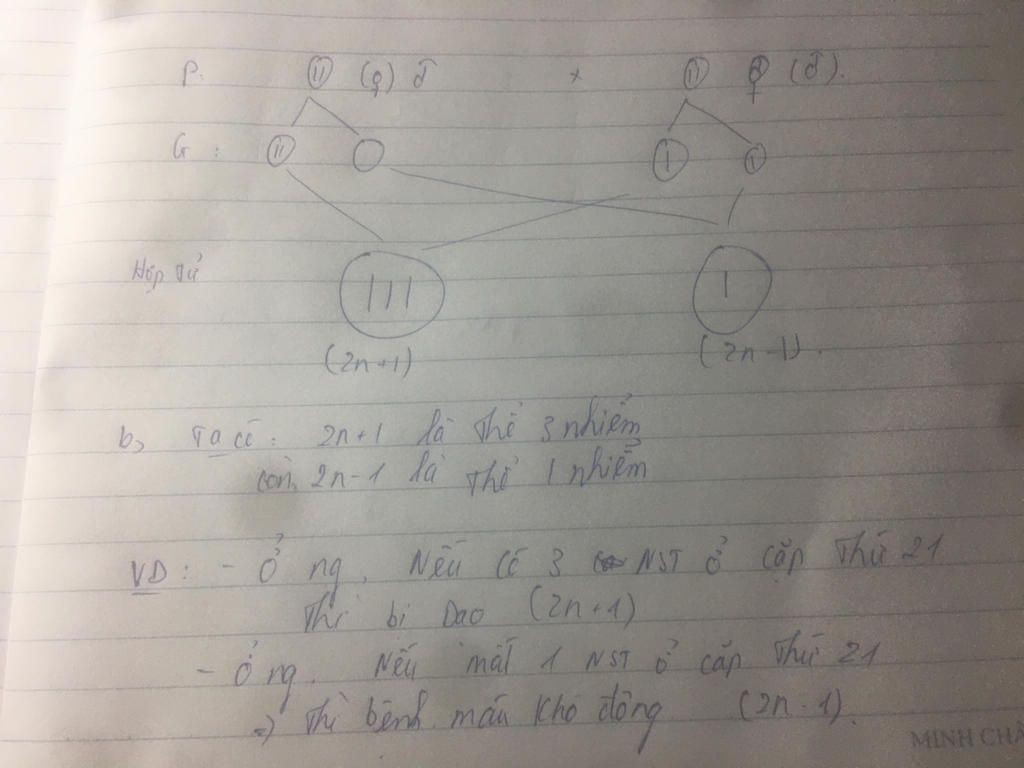 P: (♀) ♂ x ♀ (♂).
G:
Hợp tử
(2n+1) (2n-1).
b, Ta có: 2n+1 là thể 3 nhiễm
còn 2n-1 là thể 1 nhiễm
VD: - Ở ng. Nếu có 3 NST ở cặp thứ 21
thì bị Dao (2n+1)
- Ở ng. Nếu mất 1 NST ở cặp thứ 21
=> thì bệnh máu khó đông (2n-1).
MINH CHÂ